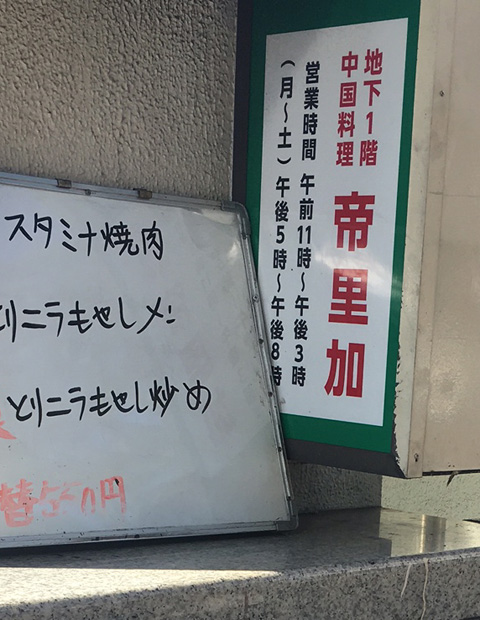 地下1階
中国料理
帝里加
営業時間 午前11時～午後3時
(月～土)午後5時～午後8時
スタミナ焼肉
とりニラもやしメ
とりニラもやし炒め
替 円